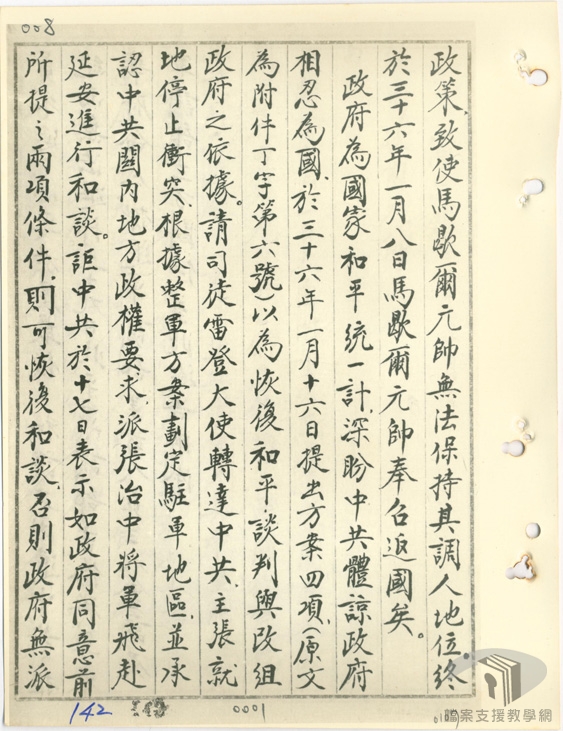 008
政策，致使馬歇爾元帥無法保持其調人地位，終
於三十六年一月八日馬歇爾元帥奉召返國矣。
政府為國家和平統一計，深盼中共體諒政府
相忍為國，於三十六年一月十六日提出方案四項，（原文
為附件丁字第六號）以為恢復和平談判與改組
政府之依據。請司徒雷登大使轉達中共，主張就
地停止衝突，根據整軍方案劃定駐軍地區，並承
認中共關內地方政權要求，派張治中將軍飛赴
延安進行和談。詎中共於十七日表示如政府同意前
所提之兩項條件，則可恢復和談，否則政府無派
142
0001
檔案支援教學網